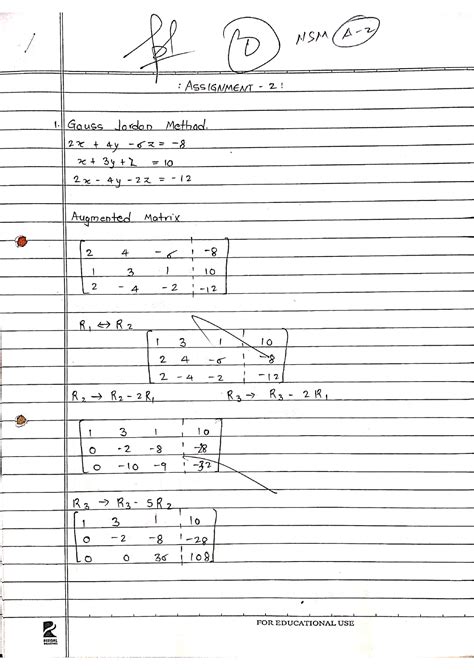 NSM A-2
: ASSIGNMENT - 2 :
1. Gauss Jordan Method.
2x + 4y - 6z = -8
x + 3y + z = 10
2x - 4y - 2z = -12
Augmented Matrix
2 4 -6 -8
1 3 1 10
2 -4 -2 -12
R1 ↔ R2
1 3 1 10
2 4 -6 -8
2 -4 -2 -12
R2 → R2 - 2R1 R3 → R3 - 2R1
1 3 1 10
0 -2 -8 -28
0 -10 -9 -32
R3 → R3 - 5R2
1 3 1 10
0 -2 -8 -28
0 0 36 108
FOR EDUCATIONAL USE